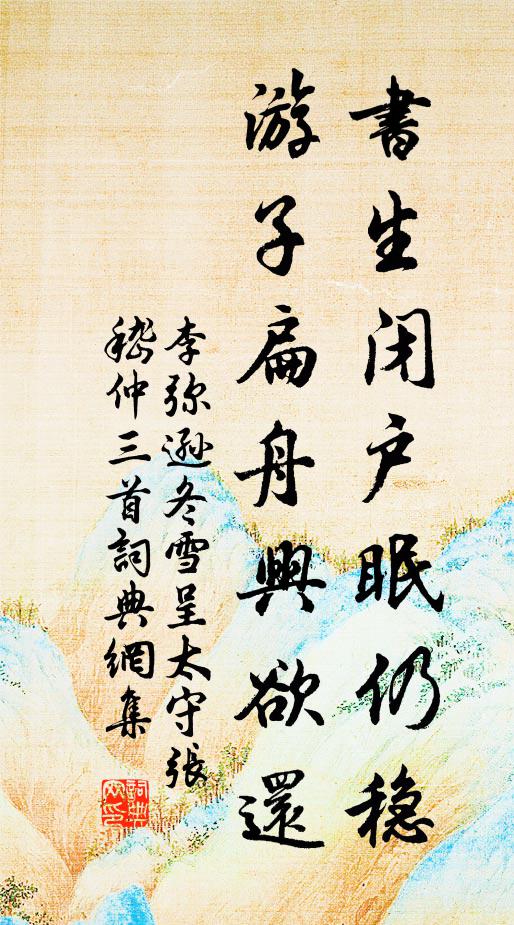 書生闭户眠仍稳
游子扁舟興欲還
李弥遜冬雪呈太守張
嵇仲三首詞典網集
詞典網印